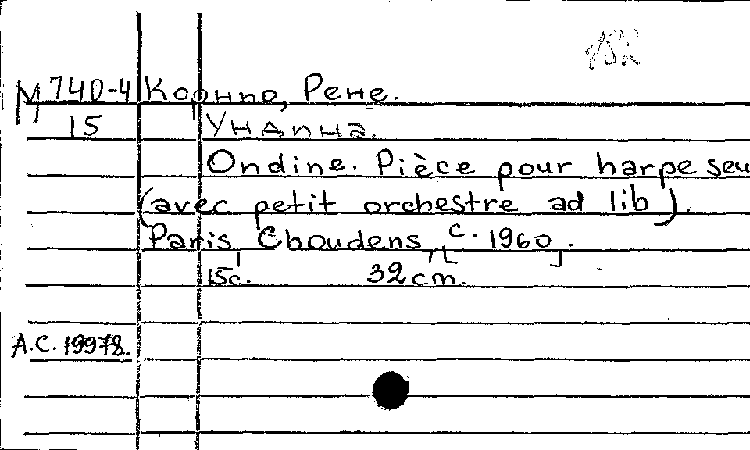 M 740-4 Корнио, Рене.
15 Ундина.
Ondine. Pièce pour harpe seu
(avec petit orchestre ad lib).
Paris Choudens, [c. 1960].
15c. 32 cm.
A.C. 19978.